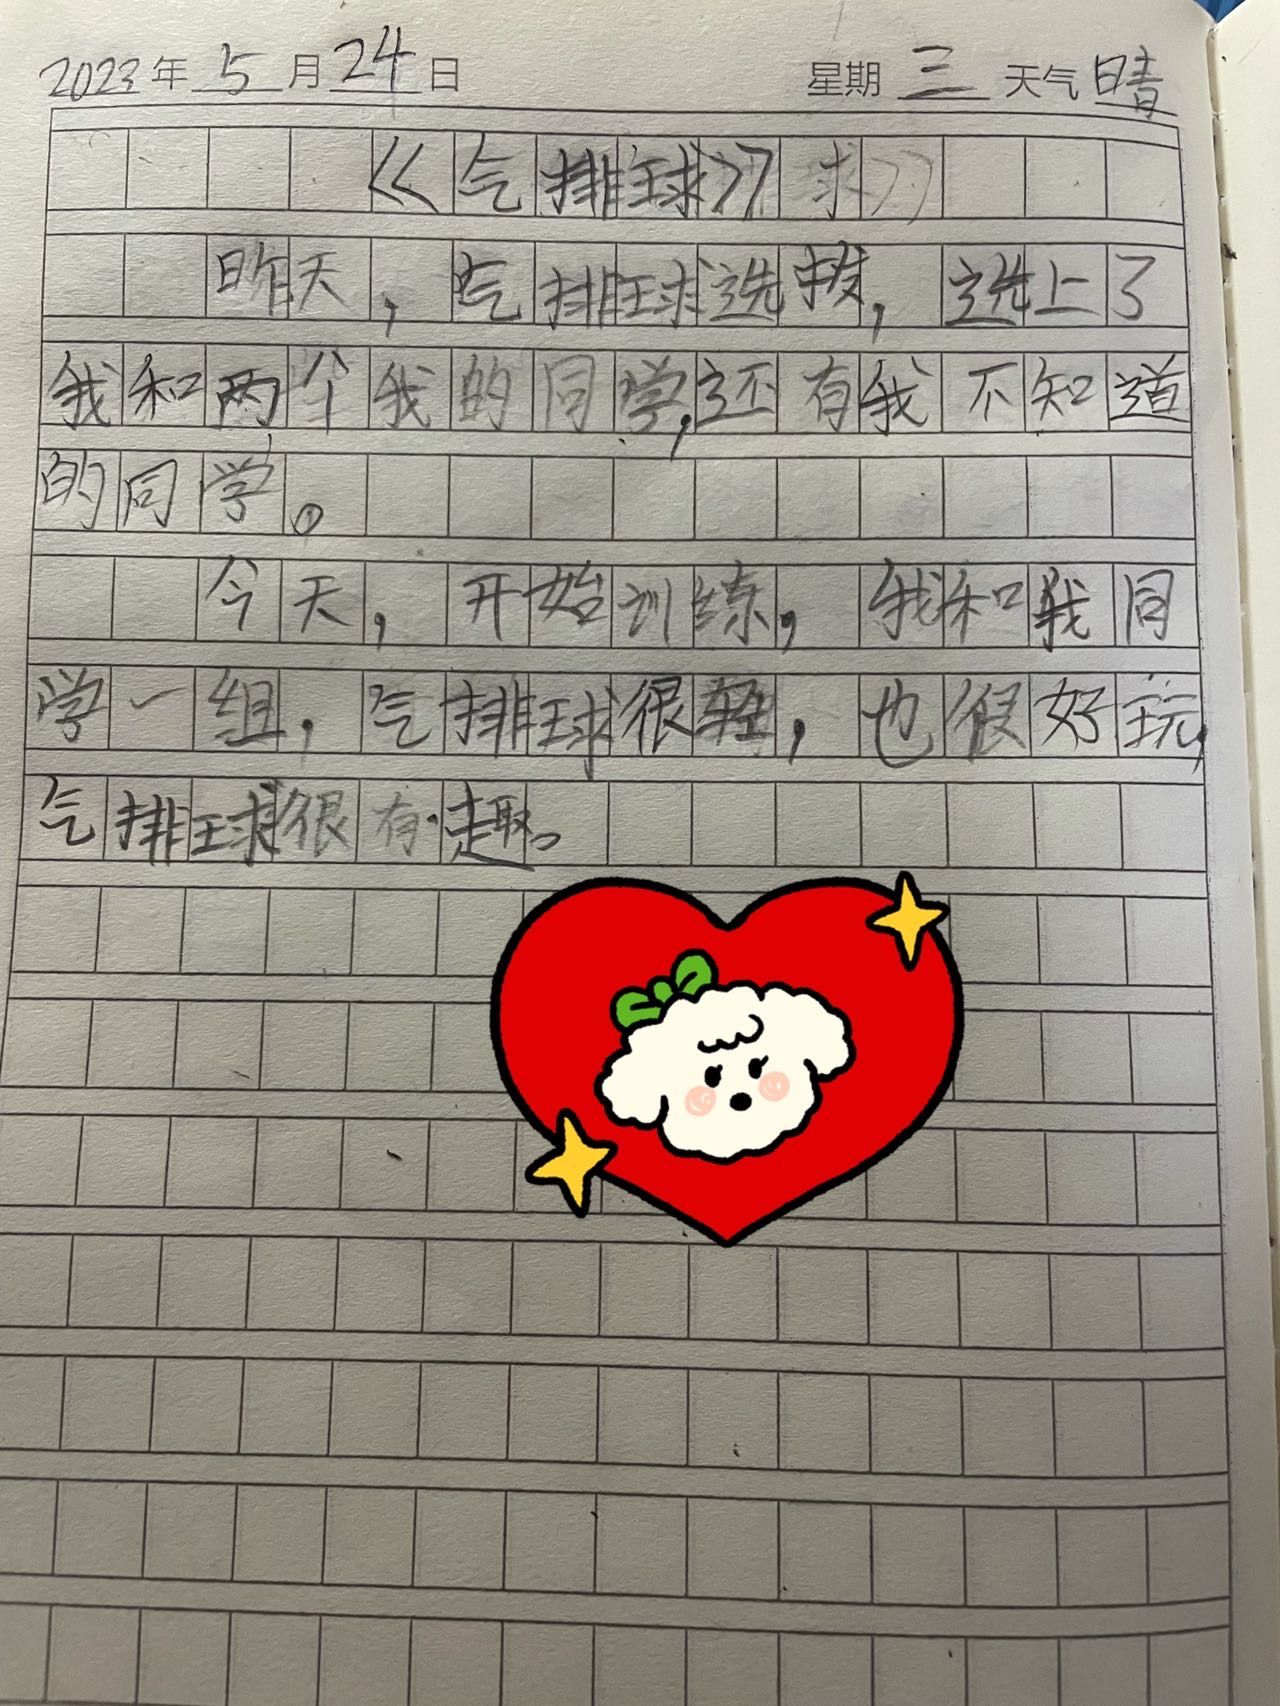 2023年 5 月 24 日 星期 三 天气 晴
《气排球》球》
昨天，气排球选拨，选上了
我和两个我的同学，还有我不知道
的同学。
今天，开始训练，我和我同
学一组，气排球很轻，也很好玩，
气排球很有趣。